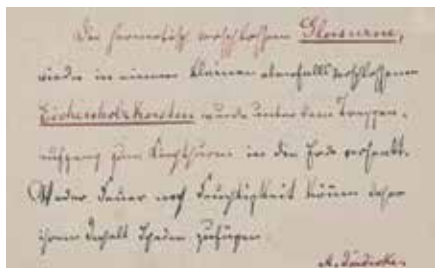 Die hermetisch verschlossene Glasurne,
wieder in einem kleinen ebenfalls verschlossenen
Eichenholzkasten wurde unter dem Treppen-
aufgang zum Kirchthurm in die Erde versenkt.
Weder Feuer noch Feuchtigkeit können daher
ihrem Inhalt Schaden zufügen.